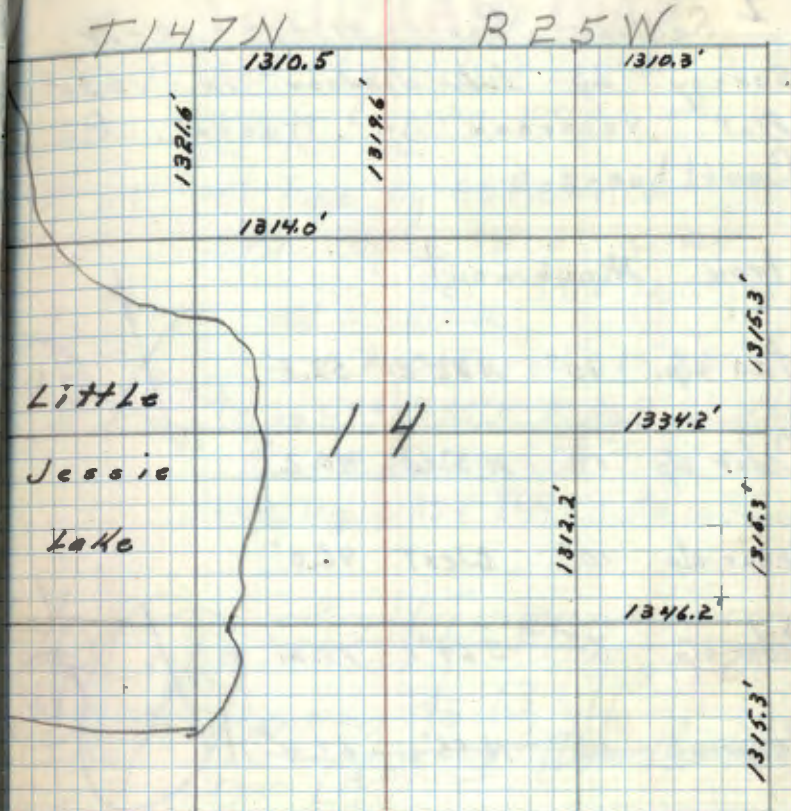 T147N R25W
1310.5 1310.3'
1321.6' 1319.6'
1314.0'
1315.3'
Little
14 1334.2'
Jessie
Lake
1312.2' 1315.3
1346.2
1315.3'